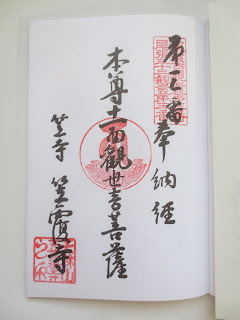 㐧三番奉納經
本尊十一面觀世音菩薩
笠寺 笠覆寺